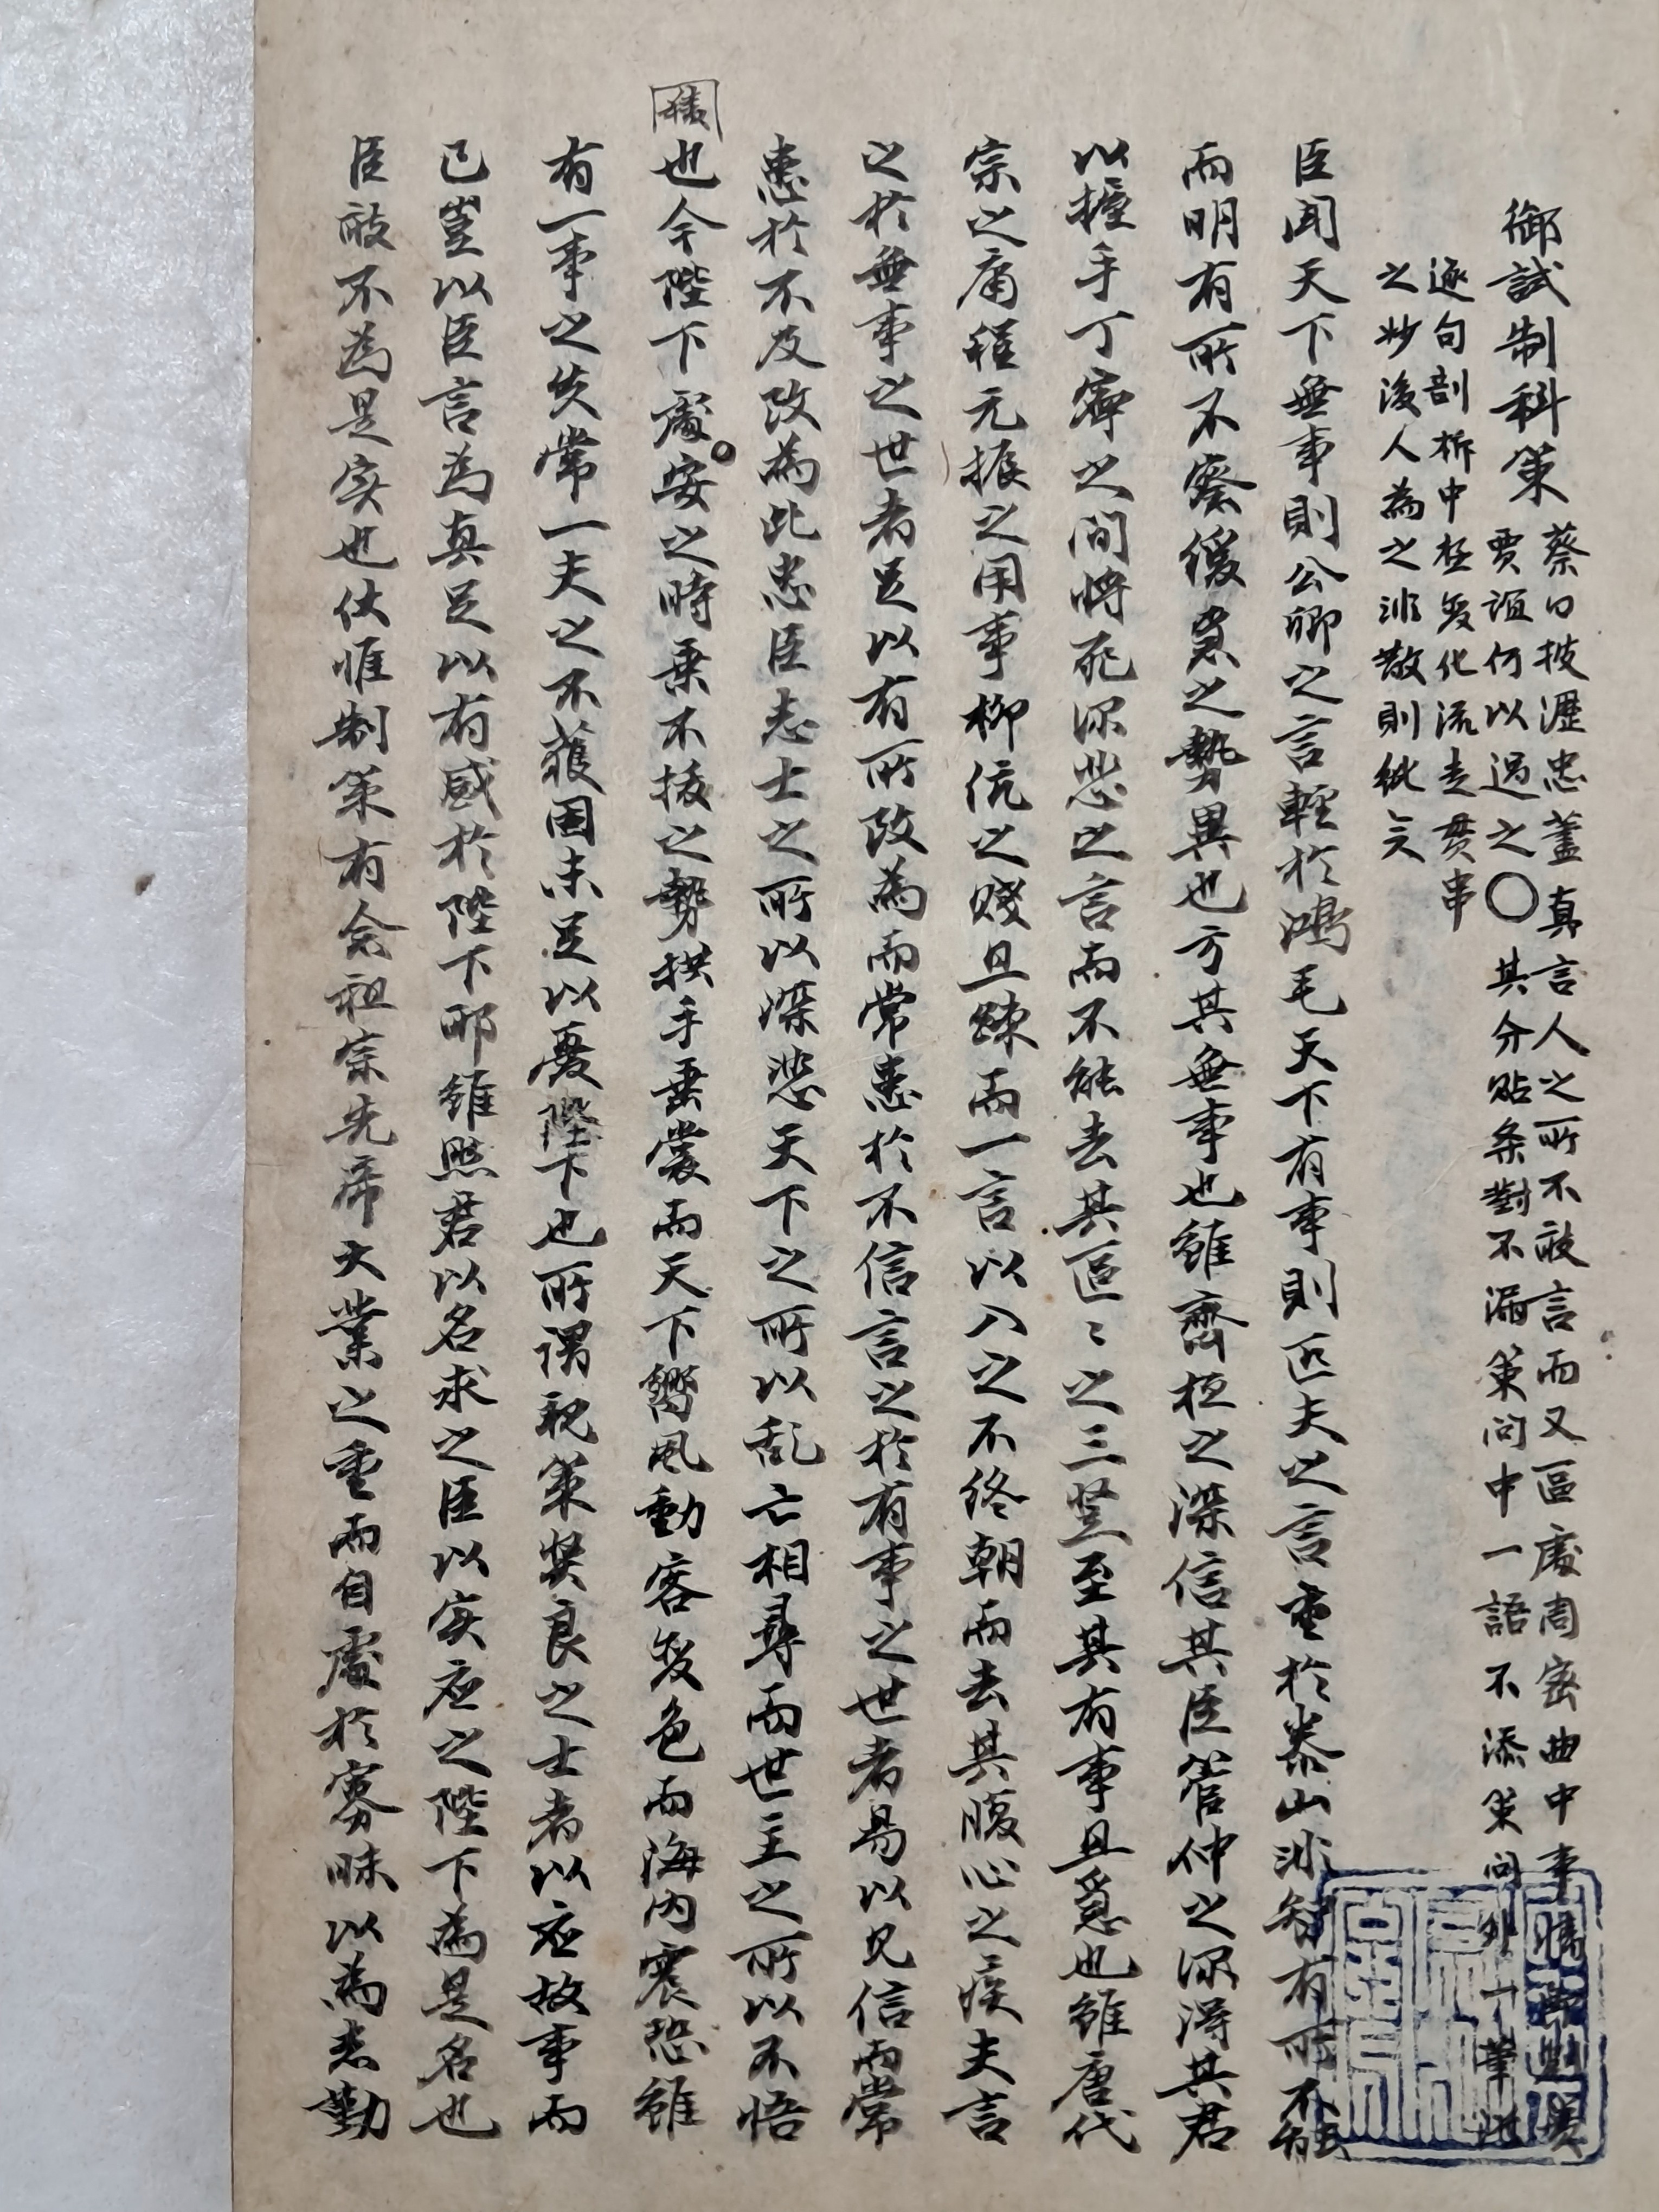 御試制科策
蔡曰披瀝忠藎真言人之所不敢言而又區處周密曲中事情
賈誼何以過之〇其分貼条對不漏策問中一語不添策問外一筆
逐句剖柝中極变化流走贯串
之妙後人為之非散則紕矣
臣闻天下無事則公卿之言輕於鴻毛天下有事則匹夫之言重於泰山非智有所不能
而明有所不察缓急之勢異也方其無事也雖齊桓之深信其臣管仲之深得其君
以握手丁寧之間将死深悲之言而不能去其區〻之三竖至其有事且急也雖唐代
宗之庸程元振之用事柳伉之賤且踈而一言以入之不终朝而去其腹心之疾夫言
之於無事之世者足以有所改為而常患於不信言之於有事之世者易以見信而常
患於不及改為此忠臣志士之所以深悲天下之所以乱亡相尋而世主之所以不悟
也今陛下處安之時乗不拔之勢拱手垂裳而天下嚮風動容变色而海内震恐雖
有一事之失常一夫之不獲固未足以憂陛下也所謂親策賢良之士者以应故事而
已豈以臣言為真足以有感於陛下耶雖然君以名求之臣以实应之陛下為是名也
臣敢不為是实也伏惟制策有念祖宗先帝大業之重而自處於寡昧以為志勤